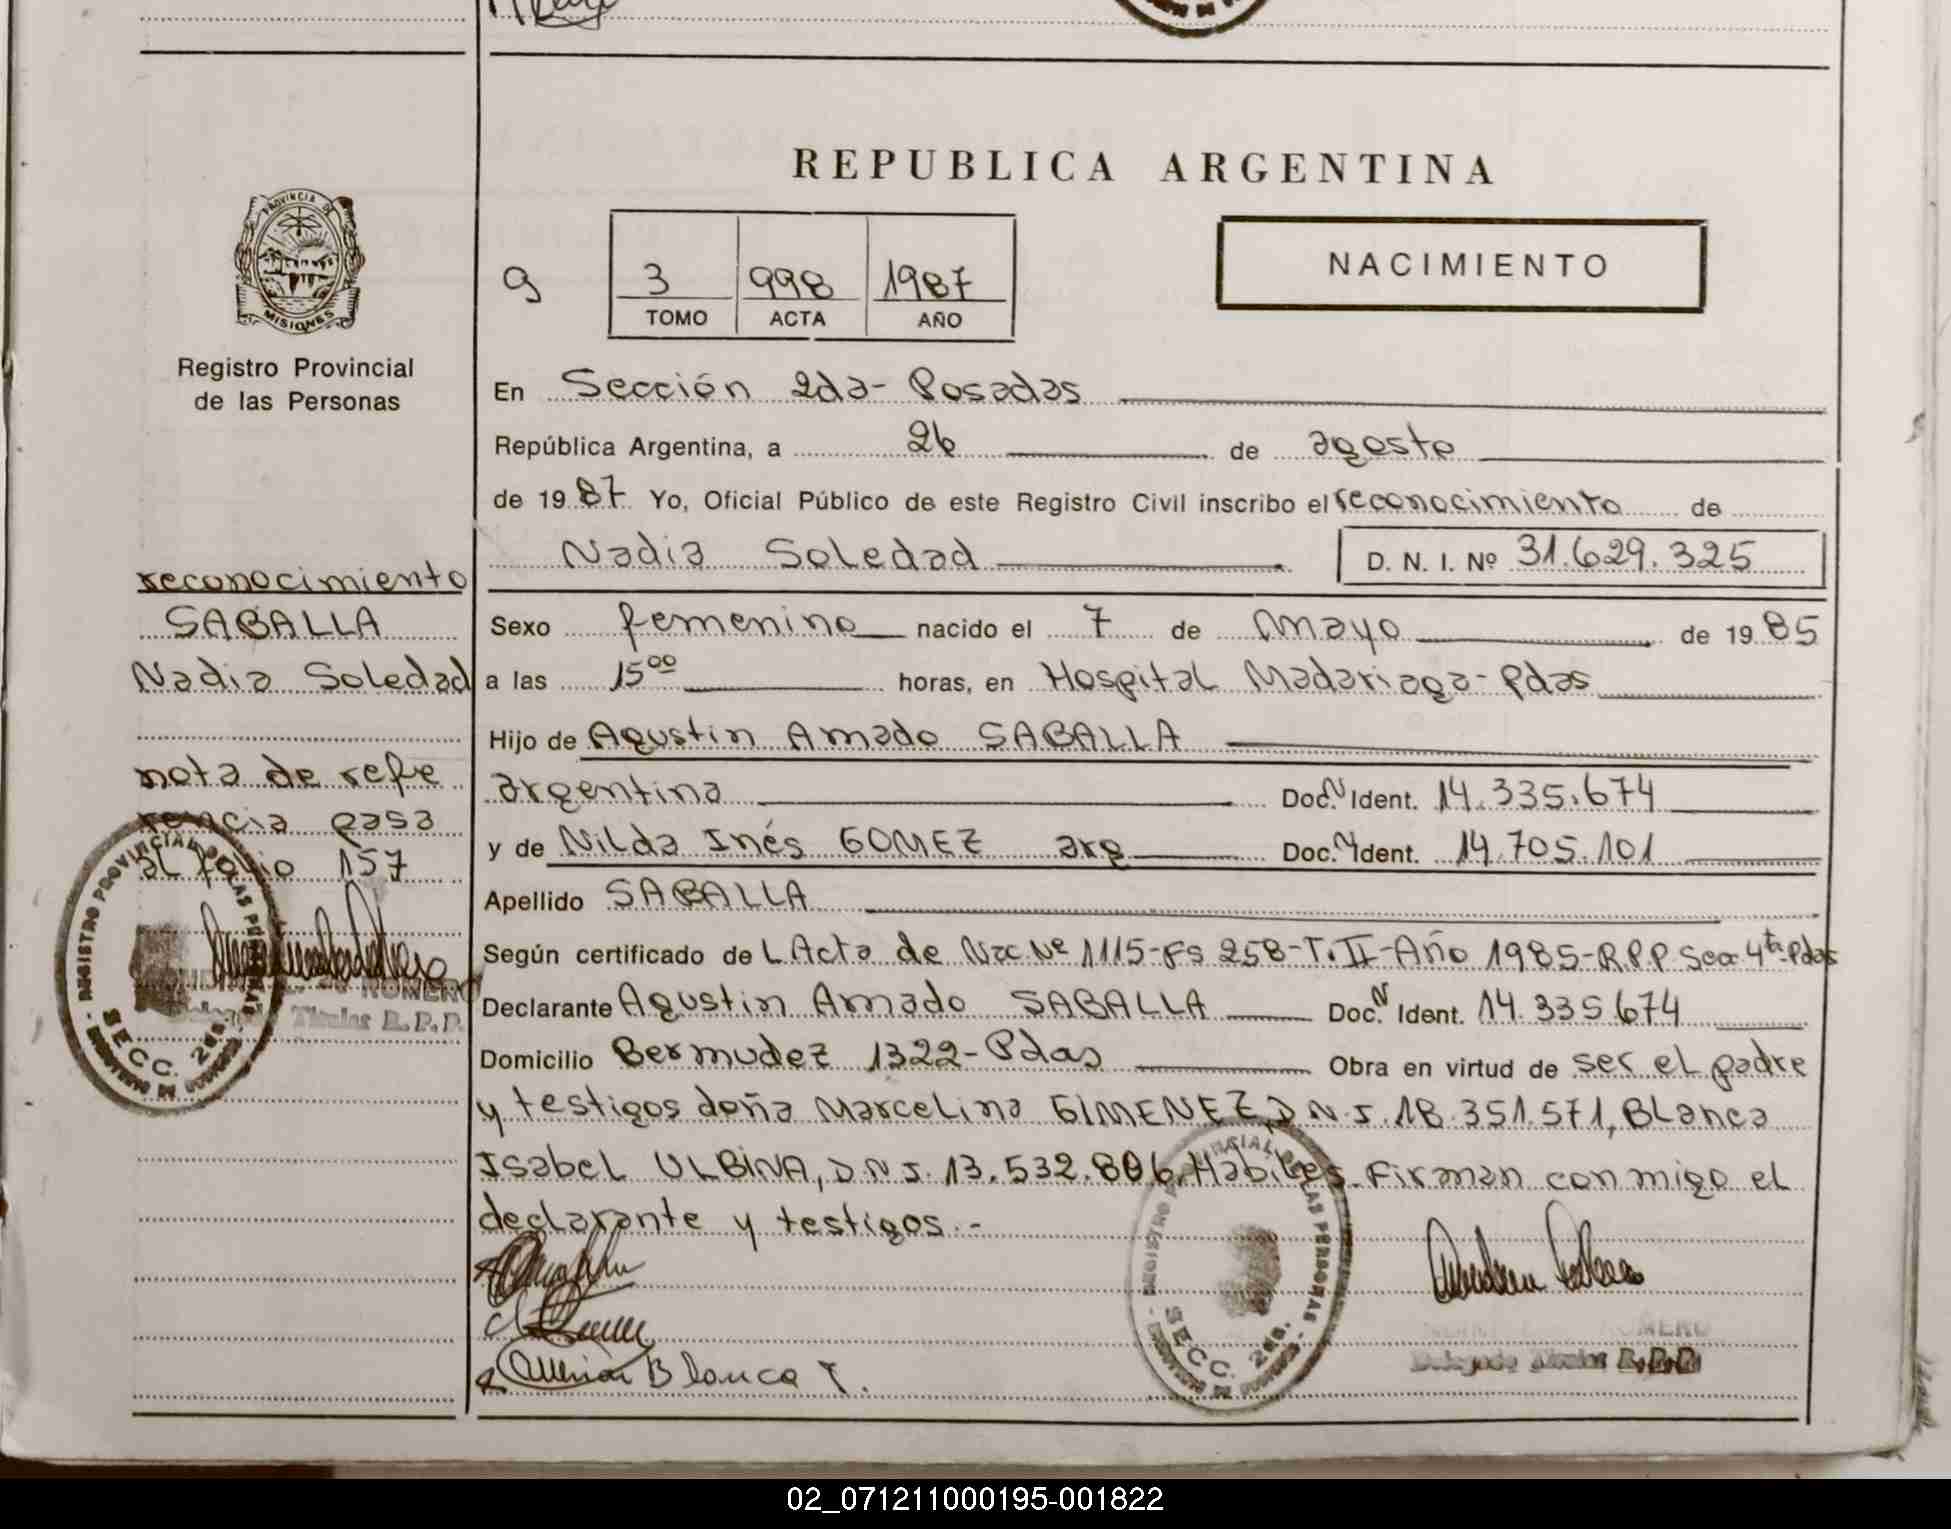 REPUBLICA ARGENTINA
PROVINCIA DE
MISIONES
Registro Provincial
de las Personas
9
3
998
1987
TOMO
ACTA
AÑO
NACIMIENTO
En Sección 2da- Posadas
República Argentina, a 26 de agosto
de 1987 Yo, Oficial Público de este Registro Civil inscribo el reconocimiento de
Nadia Soledad D. N. I. Nº 31.629.325
Sexo femenino nacido el 7 de mayo de 1985
a las 15⁰⁰ horas, en Hospital Madariaga-Pdas
Hijo de Agustin Amado SABALLA
argentina Doc.N Ident. 14.335.674
y de Nilda Inés GOMEZ arg Doc.N Ident. 14.705.101
Apellido SABALLA
Según certificado de L Acta de Nac Nº 1115-Fs 258-T.II-Año 1985-R.P.P Secc 4ta-Pdas
Declarante Agustin Amado SABALLA Doc.N Ident. 14.335.674
Domicilio Bermudez 1322-Pdas Obra en virtud de ser el padre
y testigos doña Marcelina GIMENEZ, D.N.I. 18.351.571, Blanca
Isabel ULBINA, D.N.I. 13.532.806, Habiles. Firman con migo el
declarante y testigos.-
Blanca I.
reconocimiento
SABALLA
Nadia Soledad
nota de refe
rencia pasa
al folio 157
REGISTRO PROVINCIAL DE LAS PERSONAS
SECC. 2da.
ROMERO
Titular R.P.P.
REGISTRO PROVINCIAL DE LAS PERSONAS
SECC. 2da.
ROMERO
Delegado Titular R.P.P.
02_071211000195-001822